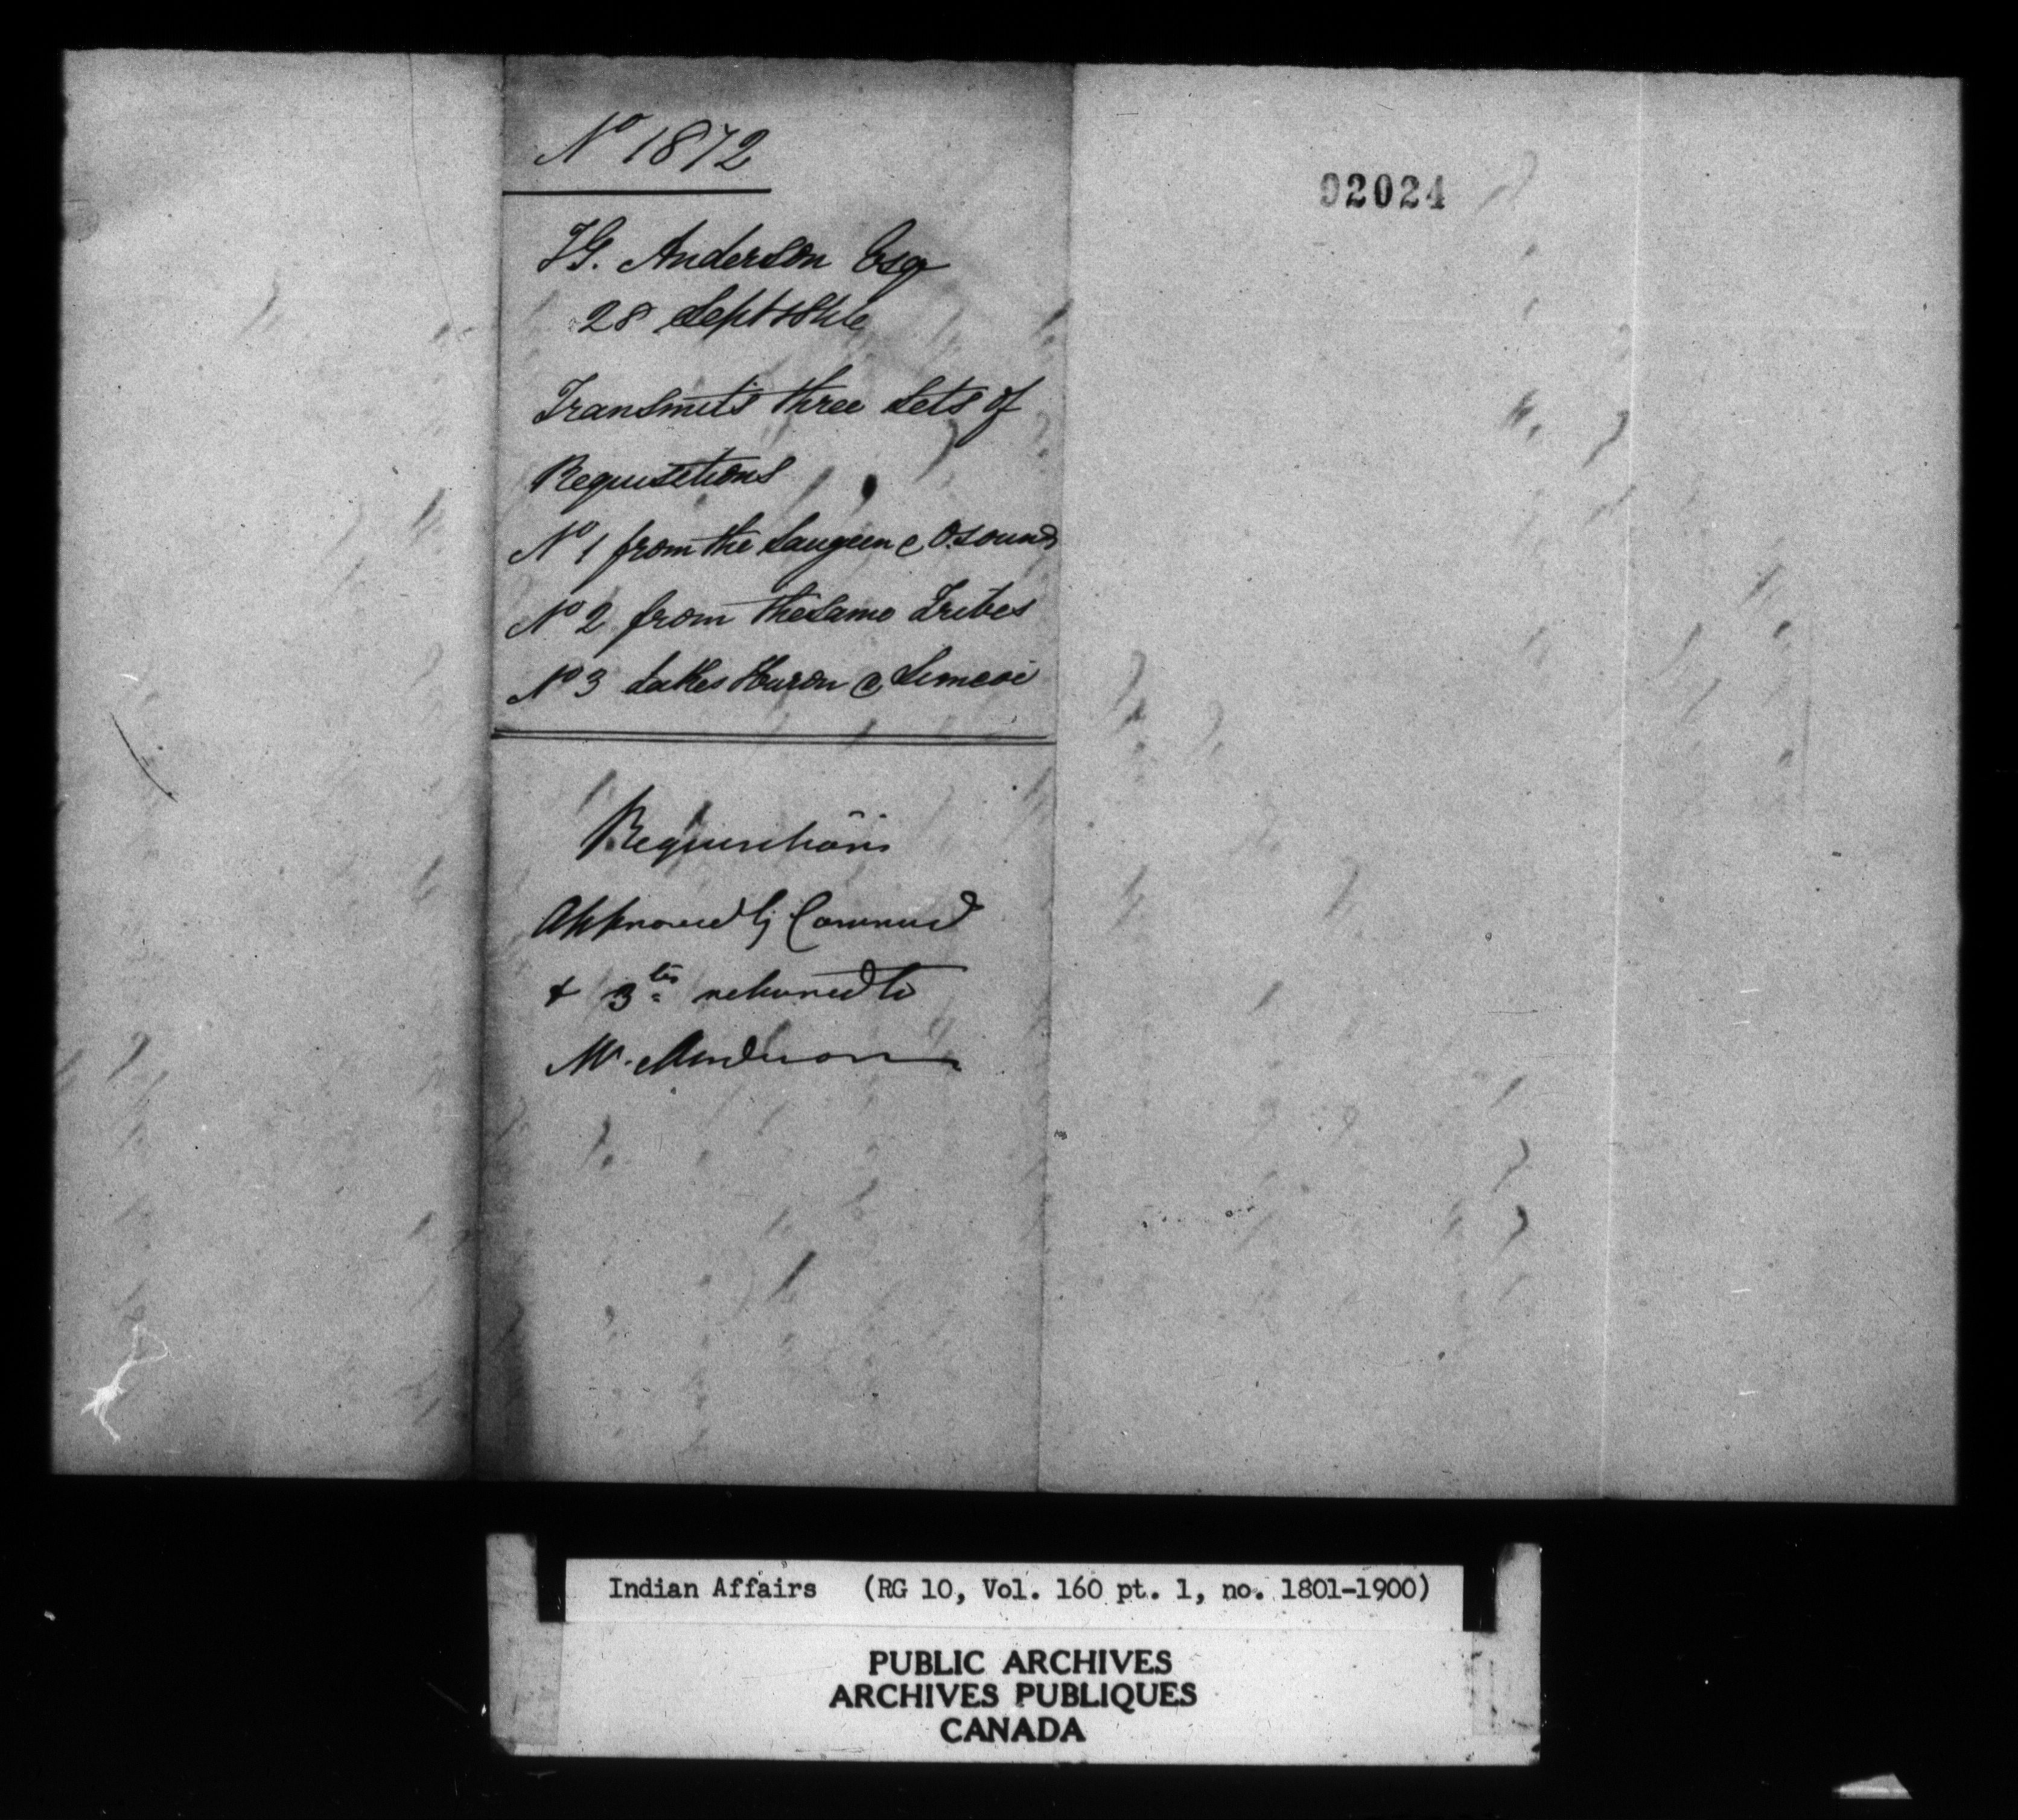 No 1872
T G. Anderson Esqr
28 Sept 1846
Transmits three Sets of
Requisitions
No 1 from the Saugeen & O. Sound
No 2 from the Same Tribes
No 3 Lakes Huron & Simcoe
Requisitions
Approved by Command
& 3tes returned to
Mr. Anderson
92024
Indian Affairs (RG 10, Vol. 160 pt. 1, no. 1801-1900)
PUBLIC ARCHIVES
ARCHIVES PUBLIQUES
CANADA